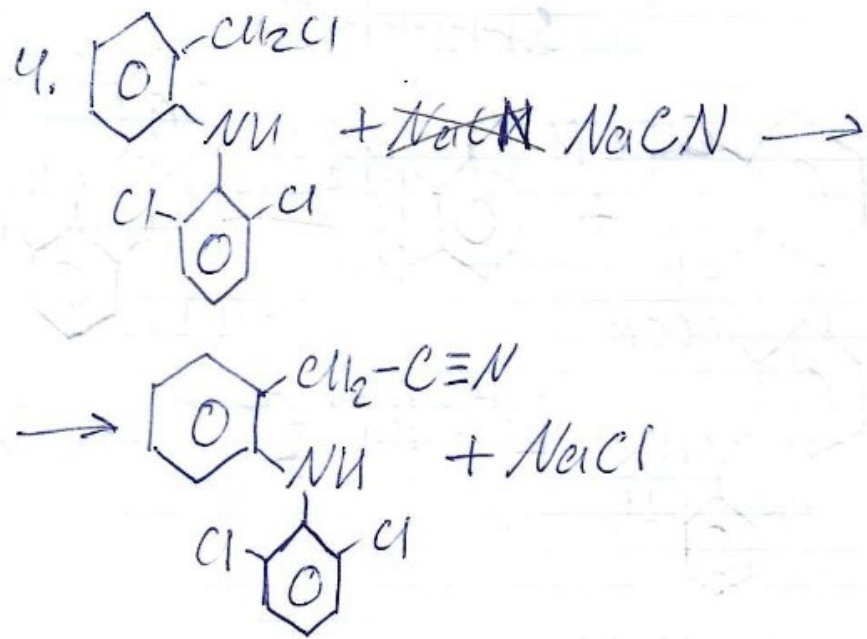 4.
CH₂Cl
NH + NaCN NaCN →
Cl Cl
→ CH₂-C≡N
NH + NaCl
Cl Cl